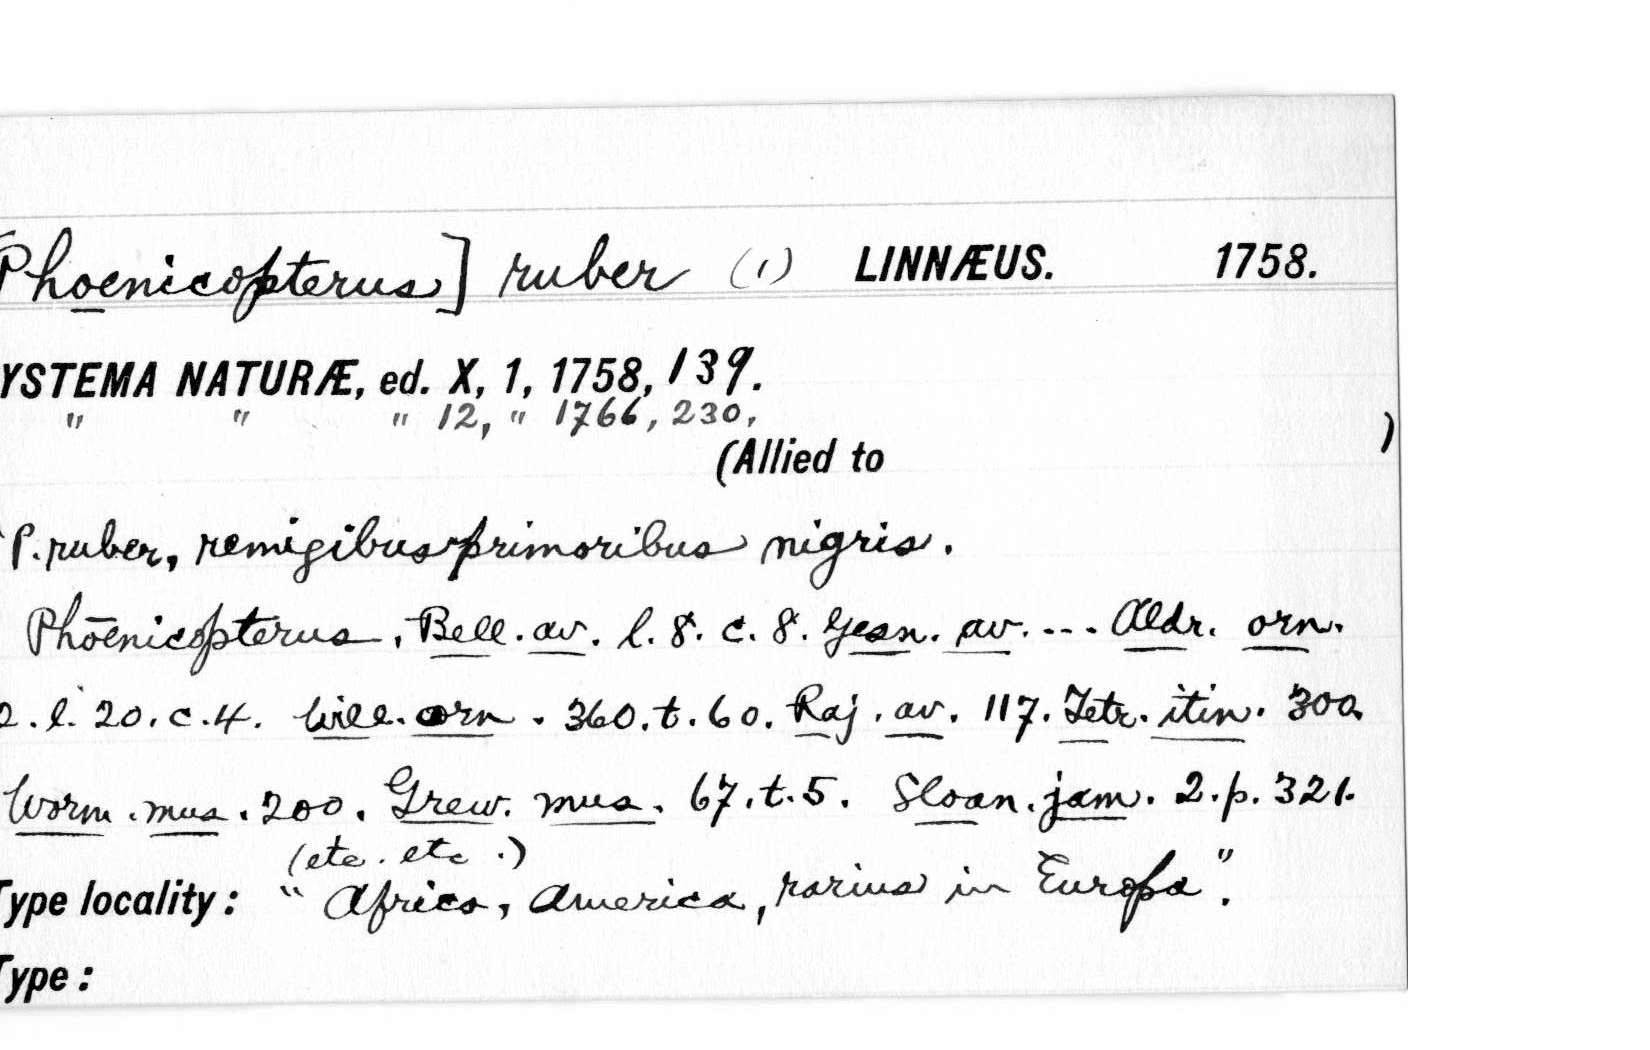 Phoenicopterus] ruber (1) LINNÆUS. 1758.
YSTEMA NATURÆ, ed. X, 1, 1758, 139.
" " " 12, " 1766, 230,
(Allied to )
P. ruber, remigibus primoribus nigris.
Phœnicopterus, Bell. av. l. 8. c. 8. Gesn. av. ... Aldr. orn.
2. l. 20. c. 4. Will. orn. 360. t. 60. Raj. av. 117. Tetr. itin. 300.
Worm. mus. 200. Grew. mus. 67. t. 5. Sloan. jam. 2. p. 321.
(etc. etc.)
Type locality: "Africa, America, rarius in Europa".
Type: